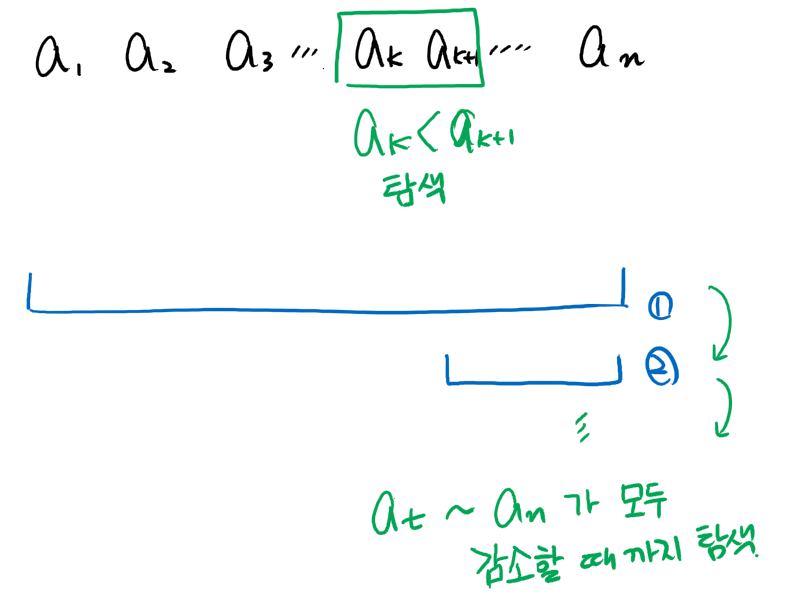 a₁ a₂ a₃ ... aₖ aₖ₊₁ .... aₙ
aₖ < aₖ₊₁
탐색
①
②
aₜ ~ aₙ 가 모두
감소할 때까지 탐색.